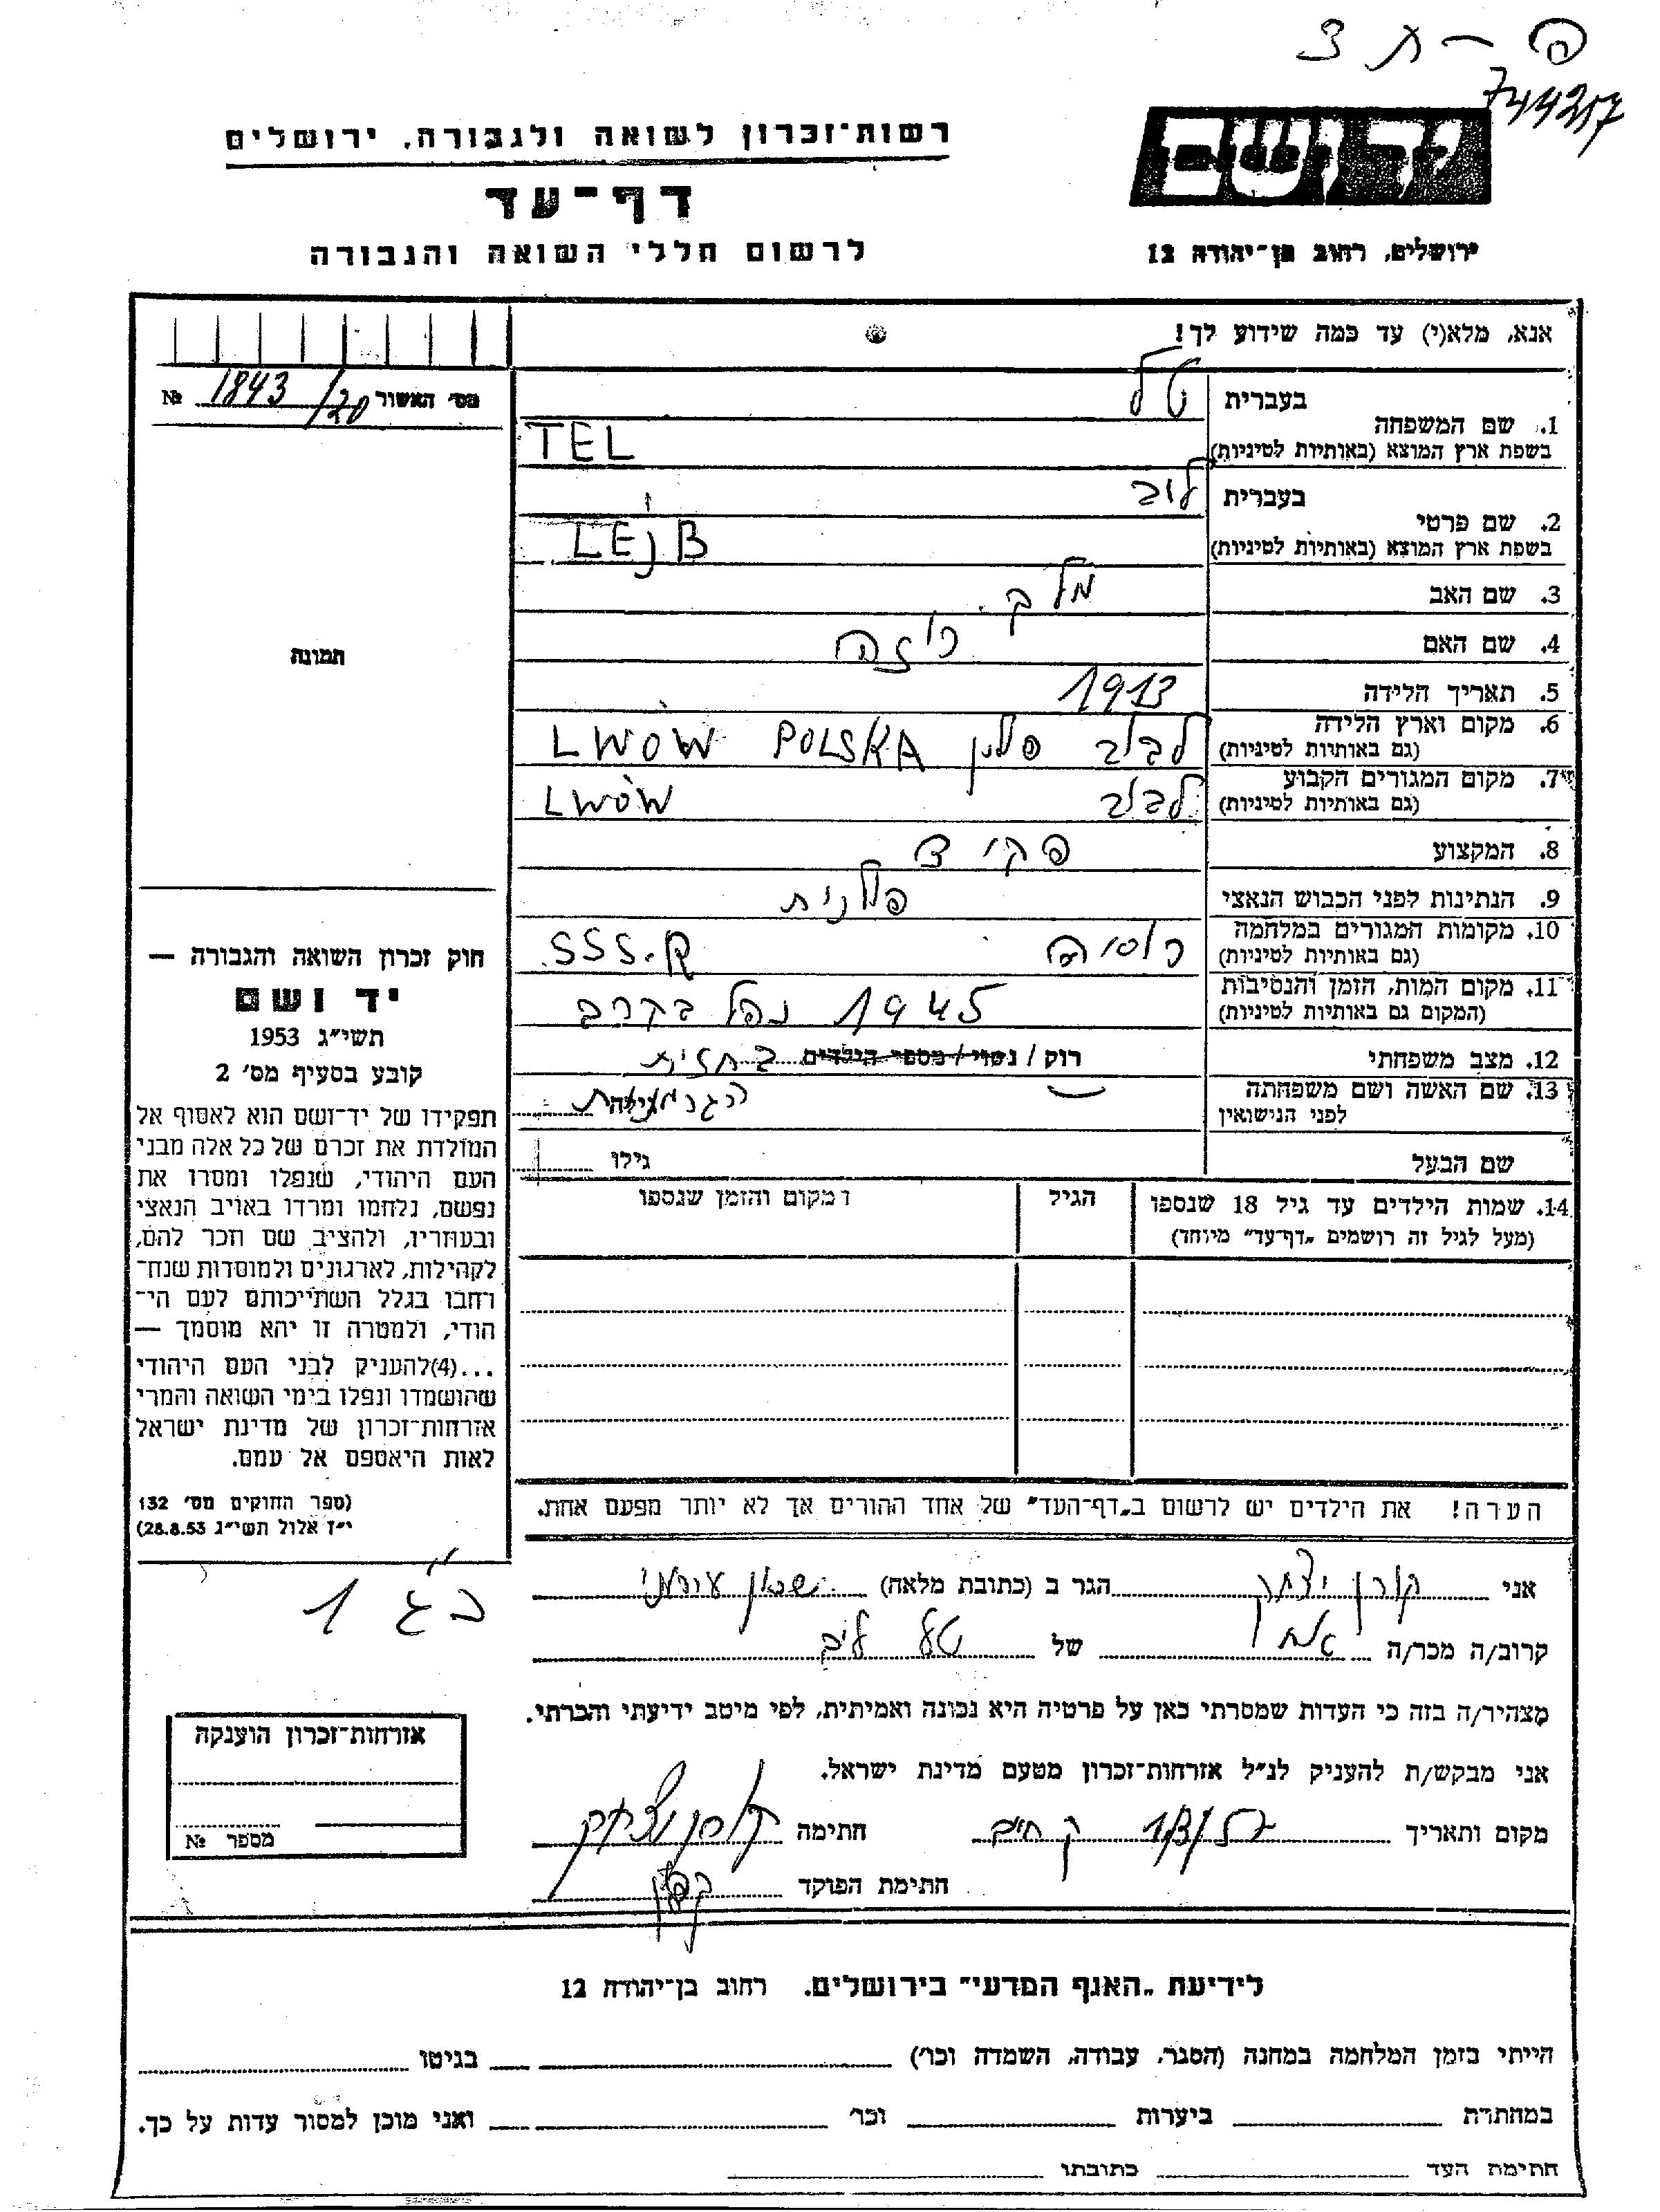 פ - ת צ
744257
יד ושם
ירושלים, רחוב בן־יהודה 12
רשות־זכרון לשואה ולגבורה, ירושלים
דף־עד
לרשום חללי השואה והגבורה
אנא, מלא(י) עד כמה שידוע לך!
מס׳ האשור 1843/20 №
תמונה
1. שם המשפחה
בעברית טל
בשפת ארץ המוצא (באותיות לטיניות) TEL
2. שם פרטי
בעברית לוב
בשפת ארץ המוצא (באותיות לטיניות) LEjB
3. שם האב
4. שם האם רוזה
5. תאריך הלידה 1913
6. מקום וארץ הלידה לבוב פולין LWÓW POLSKA
(גם באותיות לטיניות)
7. מקום המגורים הקבוע לבוב LWÓW
(גם באותיות לטיניות)
8. המקצוע פקיד
9. הנתינות לפני הכבוש הנאצי פולנית
10. מקומות המגורים במלחמה רוסיה SSS.R
(גם באותיות לטיניות)
11. מקום המות, הזמן והנסיבות 1945 נפל בקרב
(המקום גם באותיות לטיניות)
12. מצב משפחתי רוק / נשוי / מספר הילדים בחזית
13. שם האשה ושם משפחתה הגרמנית
לפני הנישואין
שם הבעל גילו
14. שמות הילדים עד גיל 18 שנספו הגיל ומקום והזמן שנספו
(מעל לגיל זה רושמים „דף־עד” מיוחד)
הערה! את הילדים יש לרשום ב„דף־העד” של אחד ההורים אך לא יותר מפעם אחת.
חוק זכרון השואה והגבורה —
יד ושם
תשי״ג 1953
קובע בסעיף מס׳ 2
תפקידו של יד־ושם הוא לאסוף אל
המולדת את זכרם של כל אלה מבני
העם היהודי, שנפלו ומסרו את
נפשם, נלחמו ומרדו באויב הנאצי
ובעוזריו, ולהציב שם וזכר להם,
לקהילות, לארגונים ולמוסדות שנח־
רחבו בגלל השתייכותם לעם הי־
הודי, ולמטרה זו יהא מוסמך —
...(4)להעניק לבני העם היהודי
שהושמדו ונפלו בימי השואה והמרי
אזרחות־זכרון של מדינת ישראל
לאות היאספם אל עמם.
(ספר החוקים מס׳ 132
י״ז אלול תשי״ג 28.8.53)
אני קורן יצחק הגר ב (כתובת מלאה) שכון עירוני
קרוב/ה מכר/ה של טל ליב
מצהיר/ה בזה כי העדות שמסרתי כאן על פרטיה היא נכונה ואמיתית, לפי מיטב ידיעתי והכרתי.
אני מבקש/ת להעניק לנ״ל אזרחות־זכרון מטעם מדינת ישראל.
מקום ותאריך ק חיים חתימה קורן יצחק
חתימת הפוקד
אזרחות־זכרון הוענקה
מספר №
לידיעת „האגף המדעי” בירושלים, רחוב בן־יהודה 12
הייתי בזמן המלחמה במחנה (הסגר, עבודה, השמדה וכו׳) בגיטו
במחתרת ביערות וכו׳ ואני מוכן למסור עדות על כך.
חתימת העד כתובתו